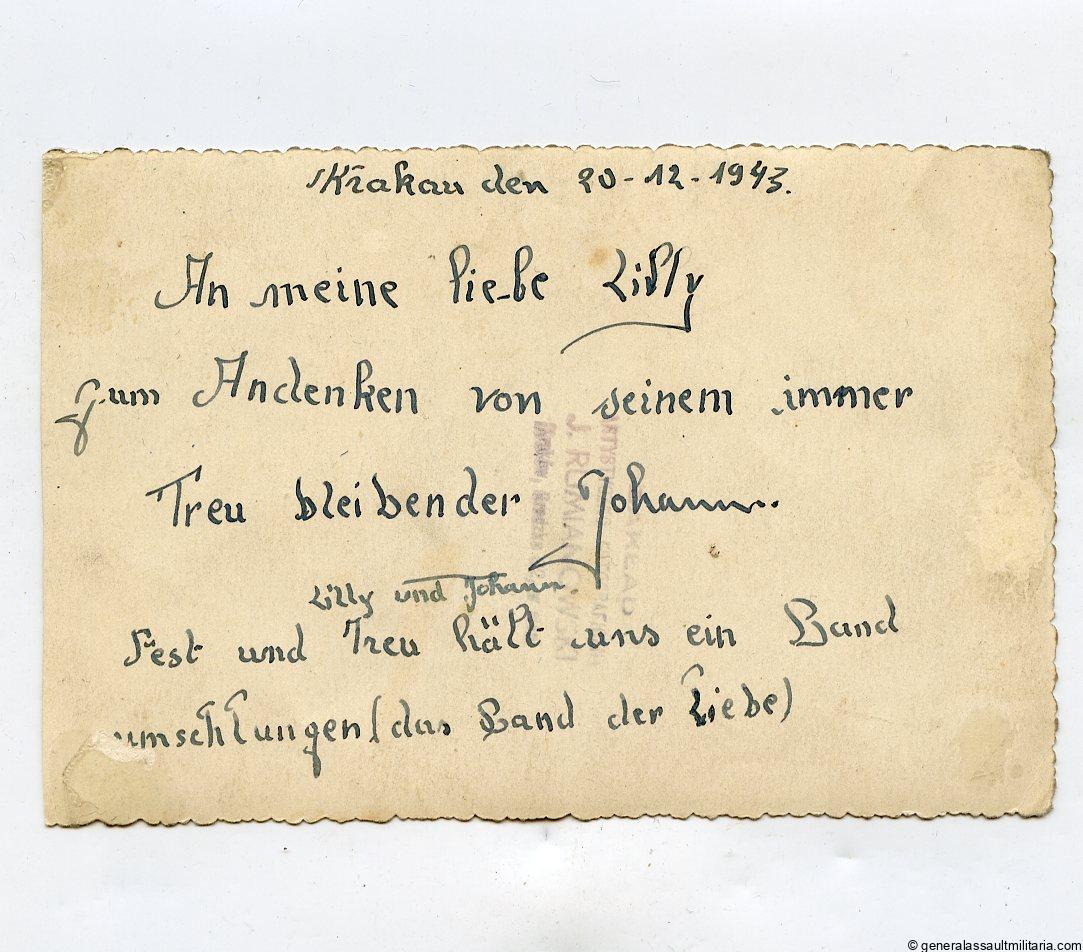 Krakau den 20-12-1943.
An meine liebe Lilly
zum Andenken von seinem immer
Treu bleibender Johann.
Lilly und Johann.
Fest und Treu hält uns ein Band
umschlungen (das Band der Liebe)
J. ROMIANOWSKI
© generalassaultmilitaria.com